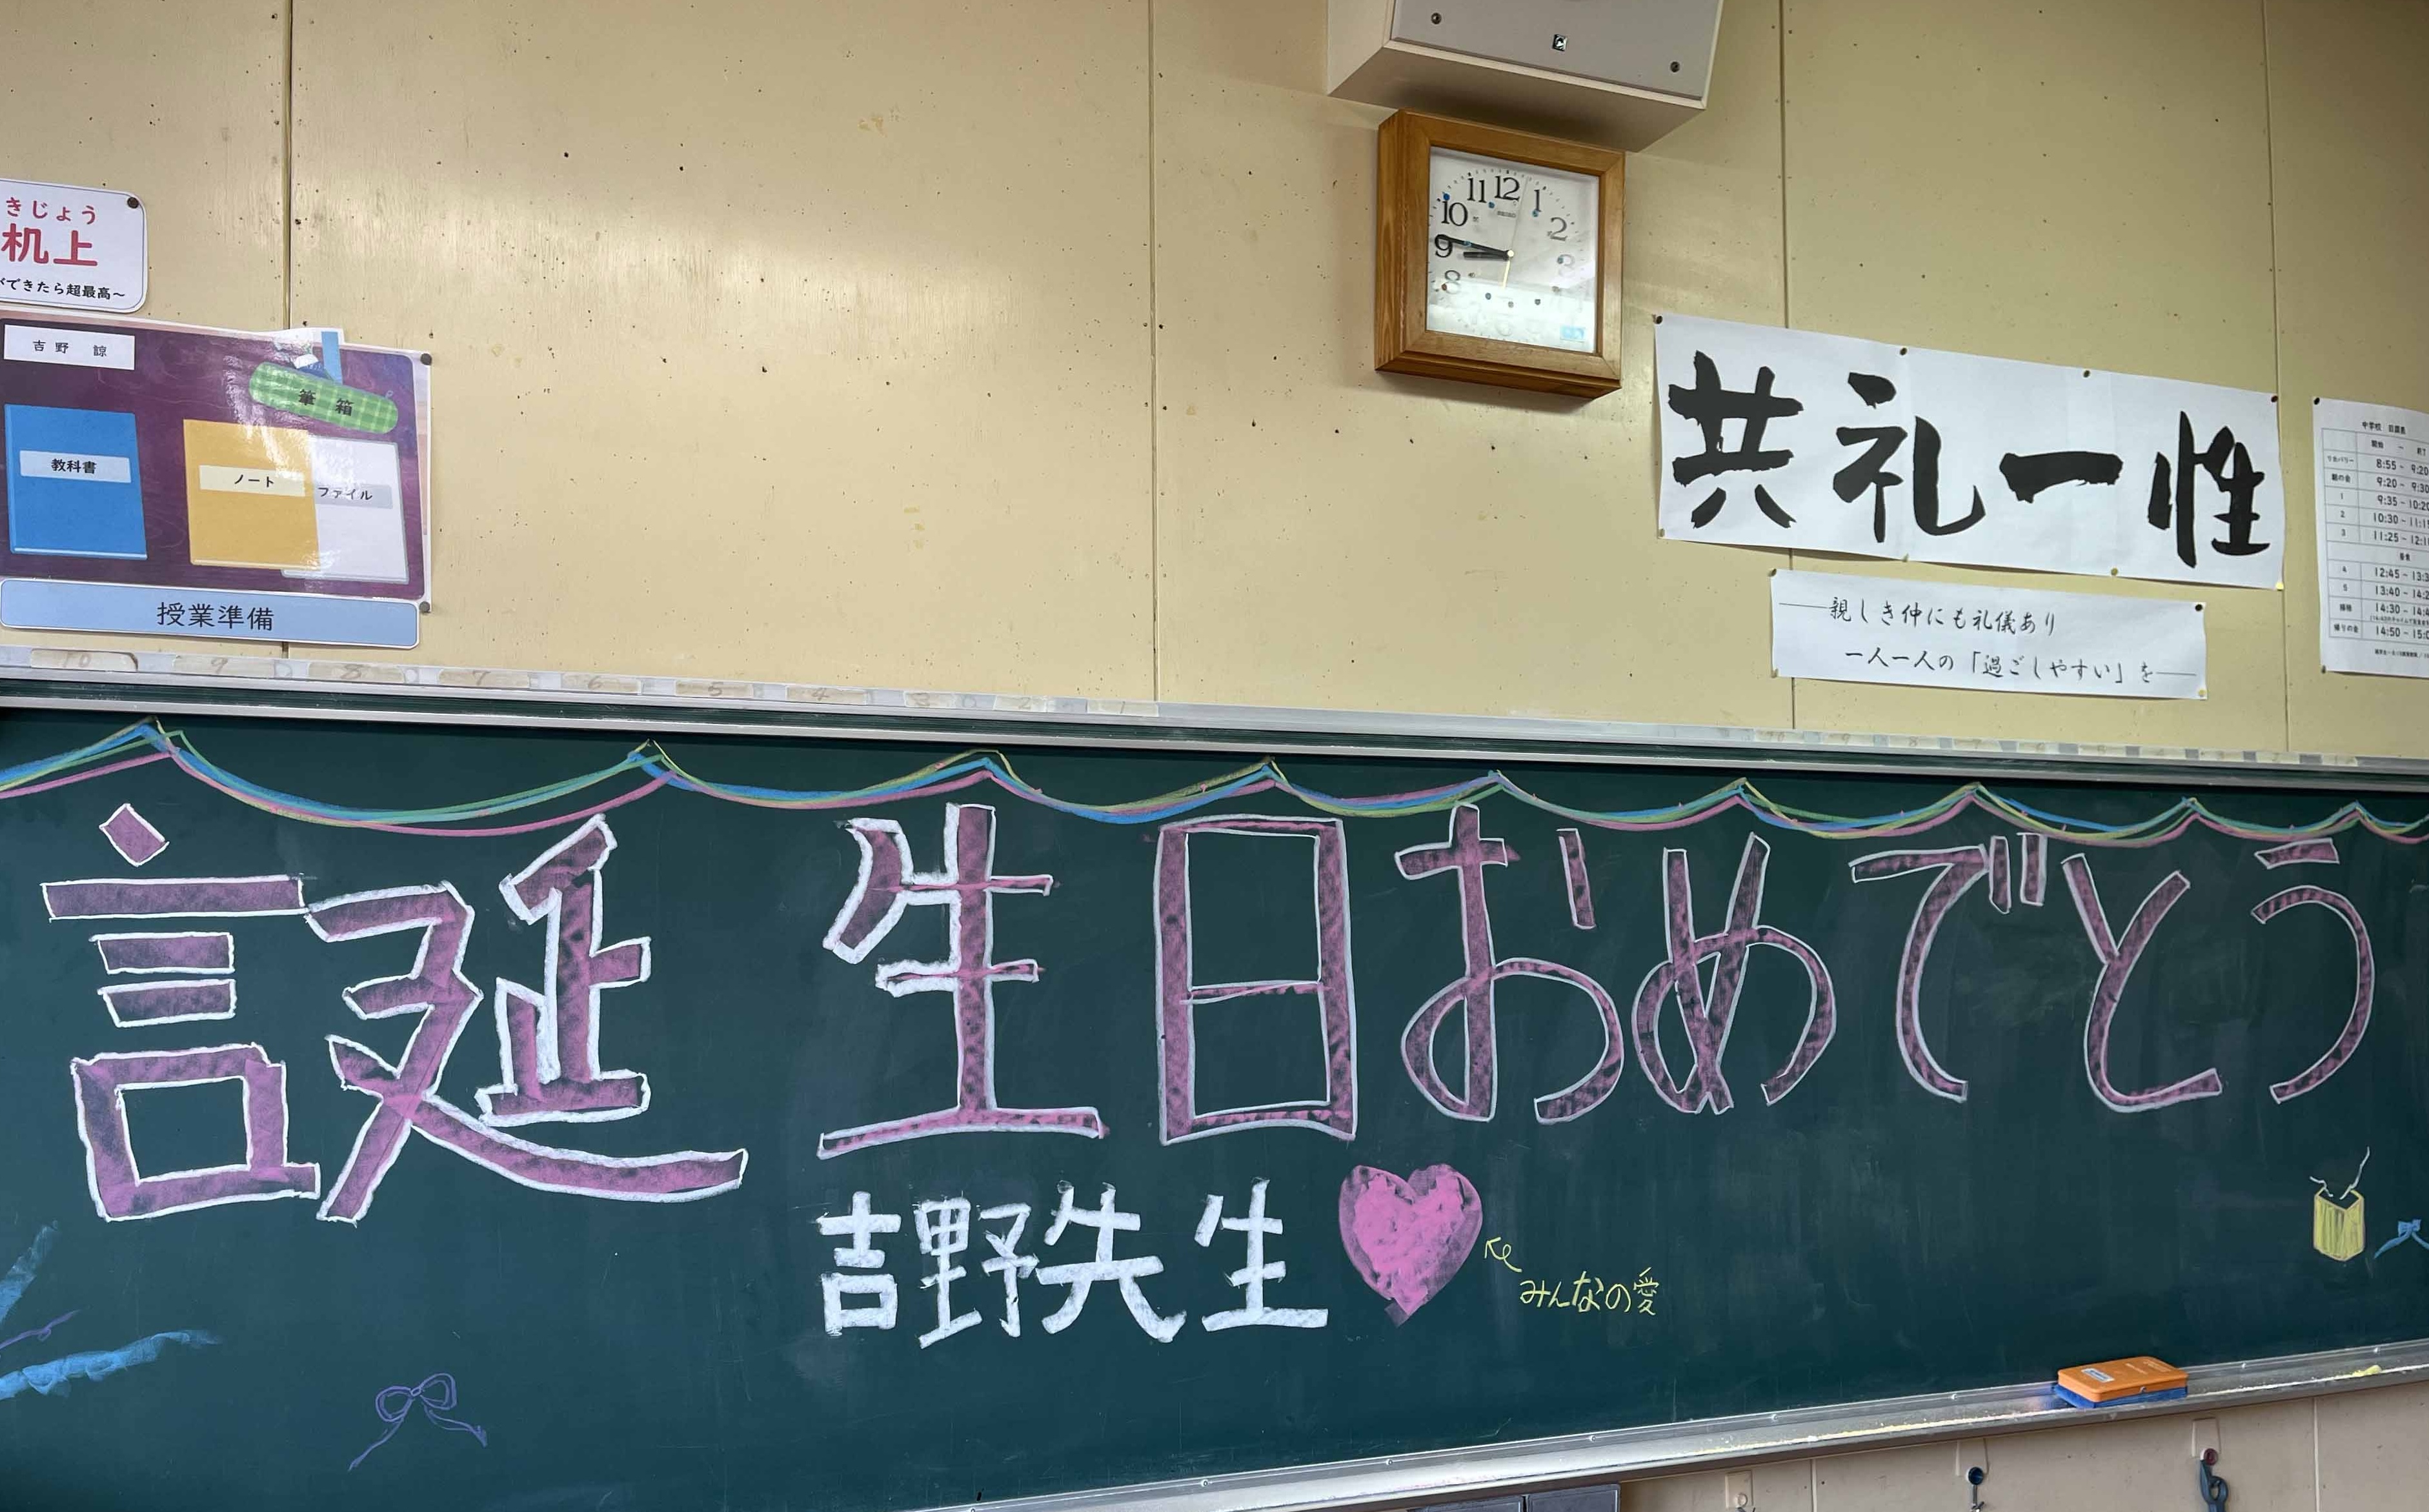 きじょう
机上
ができたら超最高～
吉野 諒
筆箱
教科書
ノート
ファイル
授業準備
10 9 8 7 6 5 4 3 2 1
11 12 1
10 2
9 3
8
SEIKO
共礼一性
親しき仲にも礼儀あり
一人一人の「過ごしやすい」を
中学校 日課表
開始 － 終了
8:55 - 9:20
朝の会 9:20 - 9:30
1 9:35 - 10:20
2 10:30 - 11:1
3 11:25 - 12:1
昼食
4 12:45 - 13:3
5 13:40 - 14:2
掃除 14:30 - 14:4
帰りの会 14:50 - 15:0
誕生日おめでとう
吉野先生
みんなの愛